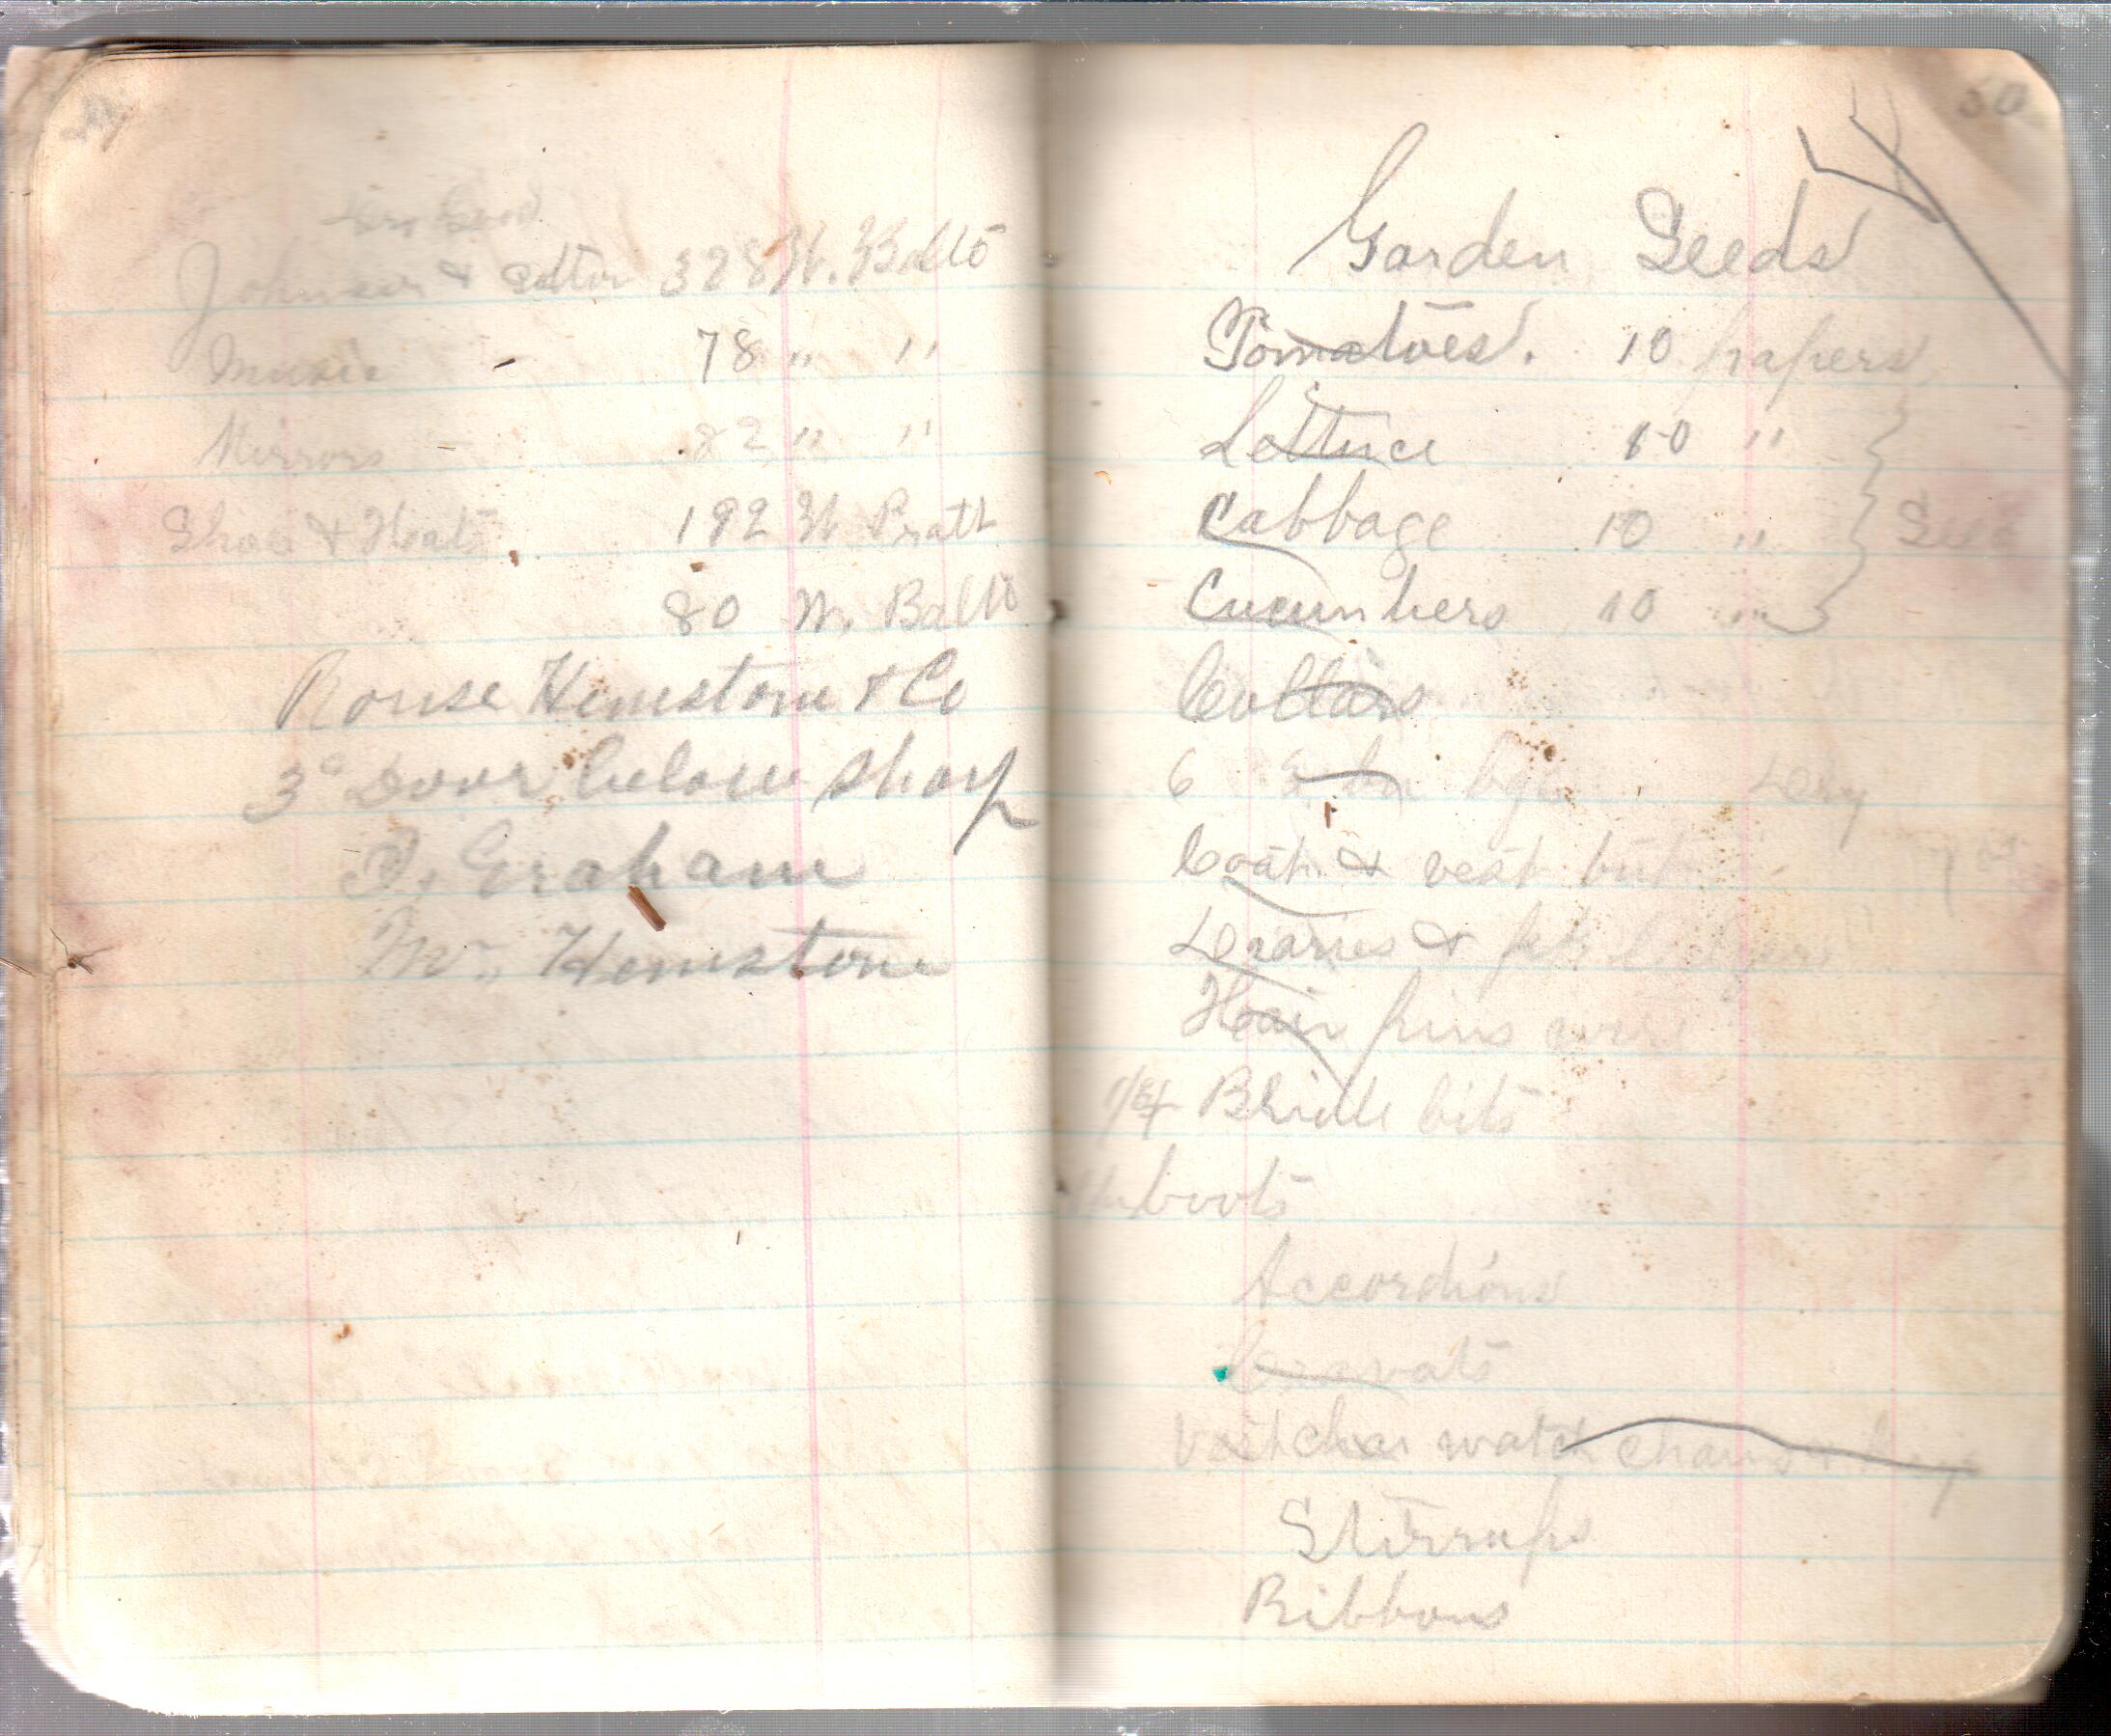 Johnson & Sutton 328 W. Balto
Music 78 " "
Mirrors 82 " "
Shoes & Hats 192 W Pratt
80 W. Balto
Rouse Hemstone & Co
3d Door below Sharp
Graham
Mr. Hemstone
50
Garden Seeds
Tomatoes. 10 papers
Lettuce 10 "
Cabbage 10 " Seed
Cucumbers 10 "
Collars
6
Coat & vest but
&
Hair pins wire
Bridle bits
boots
Accordions
Cravats
watch chains
Stirrups
Ribbons